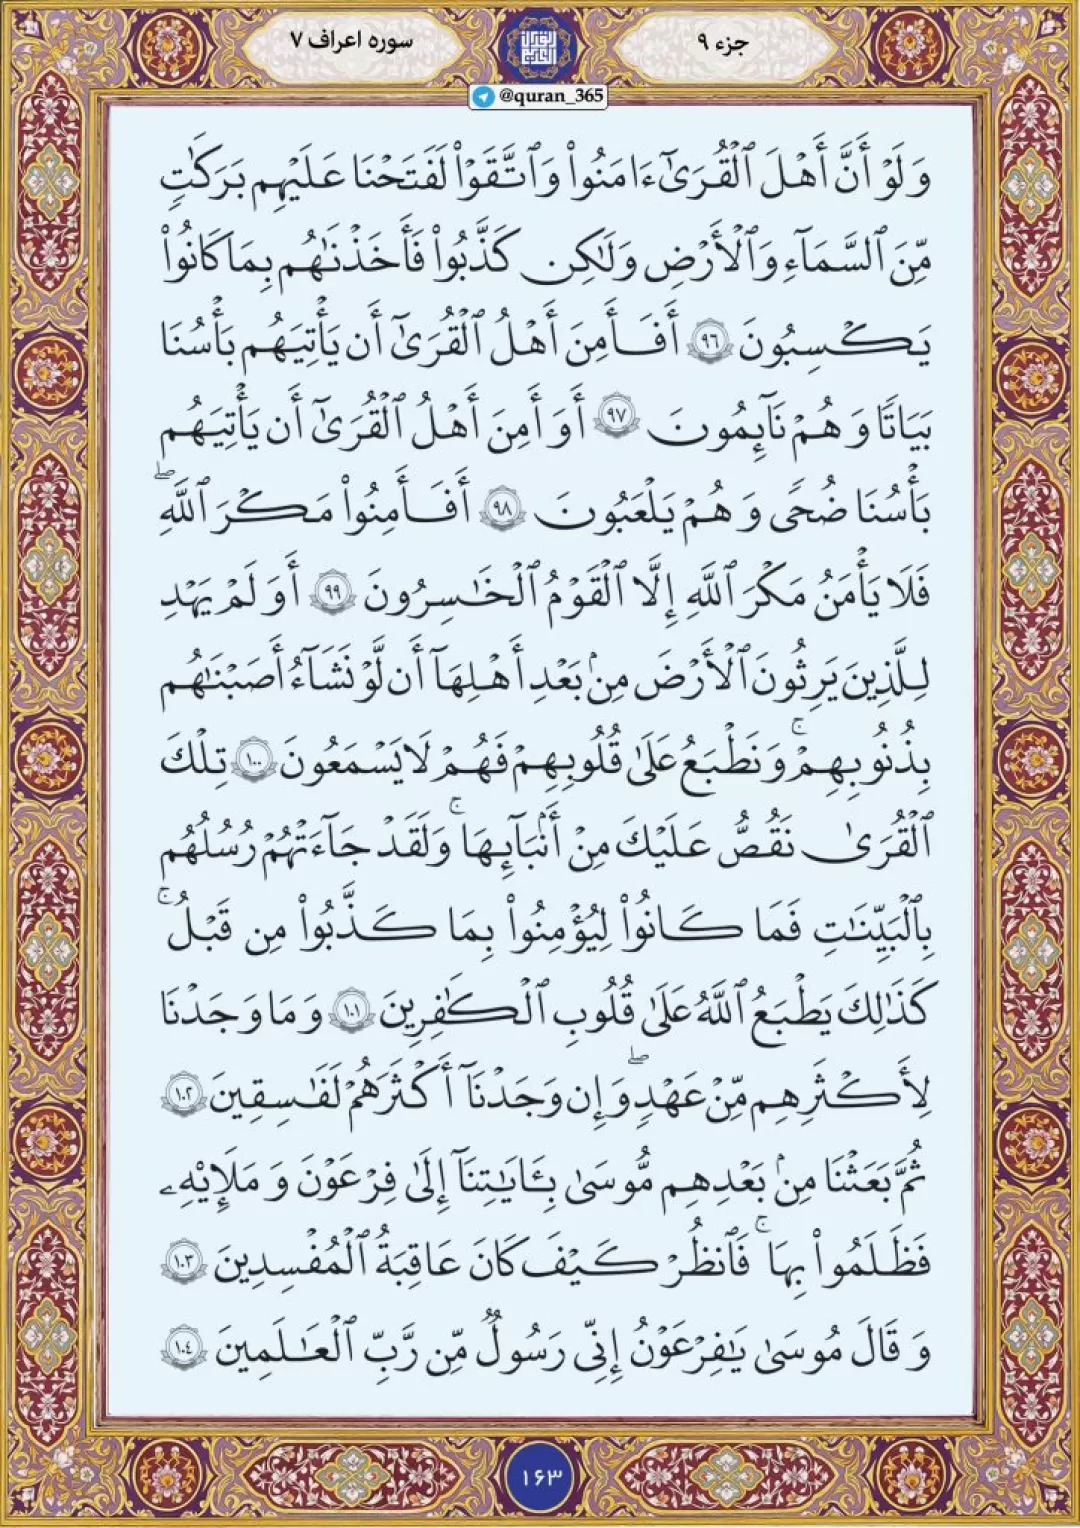 جزء ۹
سوره اعراف ۷
@quran_365
وَلَوْ أَنَّ أَهْلَ ٱلْقُرَىٰٓ ءَامَنُوا۟ وَٱتَّقَوْا۟ لَفَتَحْنَا عَلَيْهِم بَرَكَٰتٍ
مِّنَ ٱلسَّمَآءِ وَٱلْأَرْضِ وَلَٰكِن كَذَّبُوا۟ فَأَخَذْنَٰهُم بِمَا كَانُوا۟
يَكْسِبُونَ ۹۶ أَفَأَمِنَ أَهْلُ ٱلْقُرَىٰٓ أَن يَأْتِيَهُم بَأْسُنَا
بَيَاتًا وَهُمْ نَآئِمُونَ ۹۷ أَوَ أَمِنَ أَهْلُ ٱلْقُرَىٰٓ أَن يَأْتِيَهُم
بَأْسُنَا ضُحًى وَهُمْ يَلْعَبُونَ ۹۸ أَفَأَمِنُوا۟ مَكْرَ ٱللَّهِ ۖ
فَلَا يَأْمَنُ مَكْرَ ٱللَّهِ إِلَّا ٱلْقَوْمُ ٱلْخَٰسِرُونَ ۹۹ أَوَلَمْ يَهْدِ
لِلَّذِينَ يَرِثُونَ ٱلْأَرْضَ مِنۢ بَعْدِ أَهْلِهَآ أَن لَّوْ نَشَآءُ أَصَبْنَٰهُم
بِذُنُوبِهِمْ ۚ وَنَطْبَعُ عَلَىٰ قُلُوبِهِمْ فَهُمْ لَا يَسْمَعُونَ ۱۰۰ تِلْكَ
ٱلْقُرَىٰ نَقُصُّ عَلَيْكَ مِنْ أَنۢبَآئِهَا ۚ وَلَقَدْ جَآءَتْهُمْ رُسُلُهُم
بِٱلْبَيِّنَٰتِ فَمَا كَانُوا۟ لِيُؤْمِنُوا۟ بِمَا كَذَّبُوا۟ مِن قَبْلُ ۚ
كَذَٰلِكَ يَطْبَعُ ٱللَّهُ عَلَىٰ قُلُوبِ ٱلْكَٰفِرِينَ ۱۰۱ وَمَا وَجَدْنَا
لِأَكْثَرِهِم مِّنْ عَهْدٍ ۖ وَإِن وَجَدْنَآ أَكْثَرَهُمْ لَفَٰسِقِينَ ۱۰۲
ثُمَّ بَعَثْنَا مِنۢ بَعْدِهِم مُّوسَىٰ بِـَٔايَٰتِنَآ إِلَىٰ فِرْعَوْنَ وَمَلَإِي۟هِۦ
فَظَلَمُوا۟ بِهَا ۚ فَٱنظُرْ كَيْفَ كَانَ عَاقِبَةُ ٱلْمُفْسِدِينَ ۱۰۳
وَقَالَ مُوسَىٰ يَٰفِرْعَوْنُ إِنِّى رَسُولٌ مِّن رَّبِّ ٱلْعَٰلَمِينَ ۱۰۴
۱۶۳